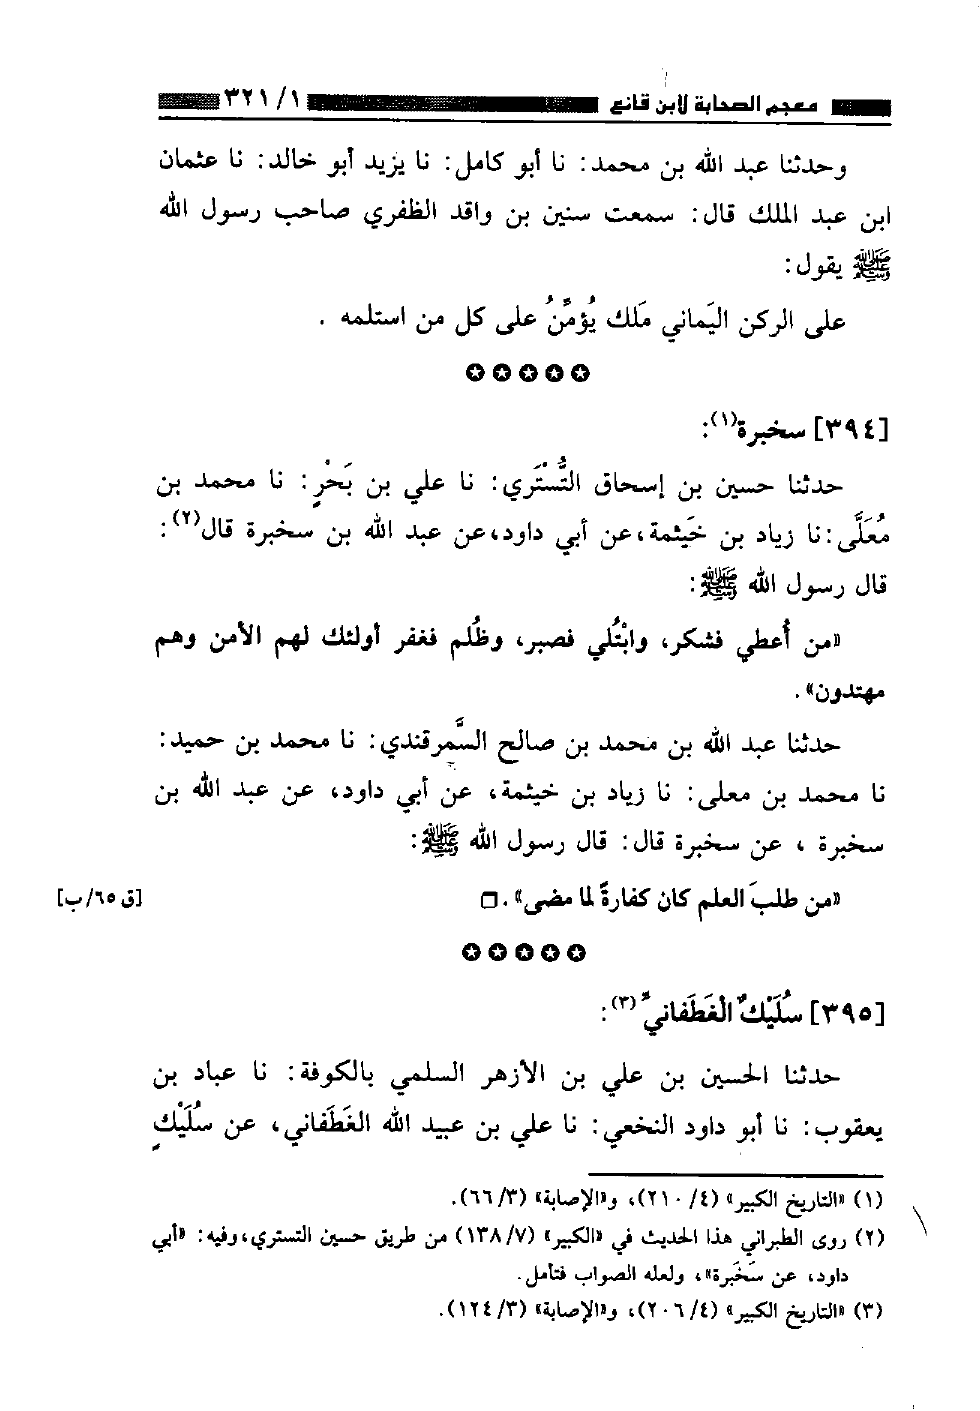 معجم الصحابة لابن قانع ٣٢١/١
وحدثنا عبد الله بن محمد: نا أبو كامل: نا يزيد أبو خالد: نا عثمان
ابن عبد الملك قال: سمعت سنين بن واقد الظفري صاحب رسول الله
ﷺ يقول:
على الركن اليَماني مَلَك يُؤمِّنُ على كل من استلمه .
[٣٩٤] سخبرة(١):
حدثنا حسين بن إسحاق التُّسْتَري: نا علي بن بَحْرٍ: نا محمد بن
مُعَلَّى: نا زياد بن خَيْثمة، عن أبي داود، عن عبد الله بن سخبرة قال(٢):
قال رسول الله ﷺ:
«من أُعطي فشكر، وابْتُلي فصبر، وظُلم فغفر أولئك لهم الأمن وهم
مهتدون».
حدثنا عبد الله بن محمد بن صالح السَّمرقندي: نا محمد بن حميد:
نا محمد بن معلى: نا زياد بن خيثمة، عن أبي داود، عن عبد الله بن
سخبرة ، عن سخبرة قال: قال رسول الله ﷺ:
«من طلبَ العلم كان كفارةً لما مضى».□ [ق ٦٥/ب]
[٣٩٥] سُلَيْكٌ الغَطَفانيّ(٣):
حدثنا الحسين بن علي بن الأزهر السلمي بالكوفة: نا عباد بن
يعقوب: نا أبو داود النخعي: نا علي بن عبيد الله الغَطَفاني، عن سُلَيْكٍ
(١) «التاريخ الكبير» (٢١٠/٤)، و«الإصابة» (٦٦/٣).
(٢) روى الطبراني هذا الحديث في «الكبير» (١٣٨/٧) من طريق حسين التستري، وفيه: «أبي
داود، عن سَخْبَرة»، ولعله الصواب فتأمل.
(٣) «التاريخ الكبير» (٢٠٦/٤)، و«الإصابة» (١٢٤/٣).